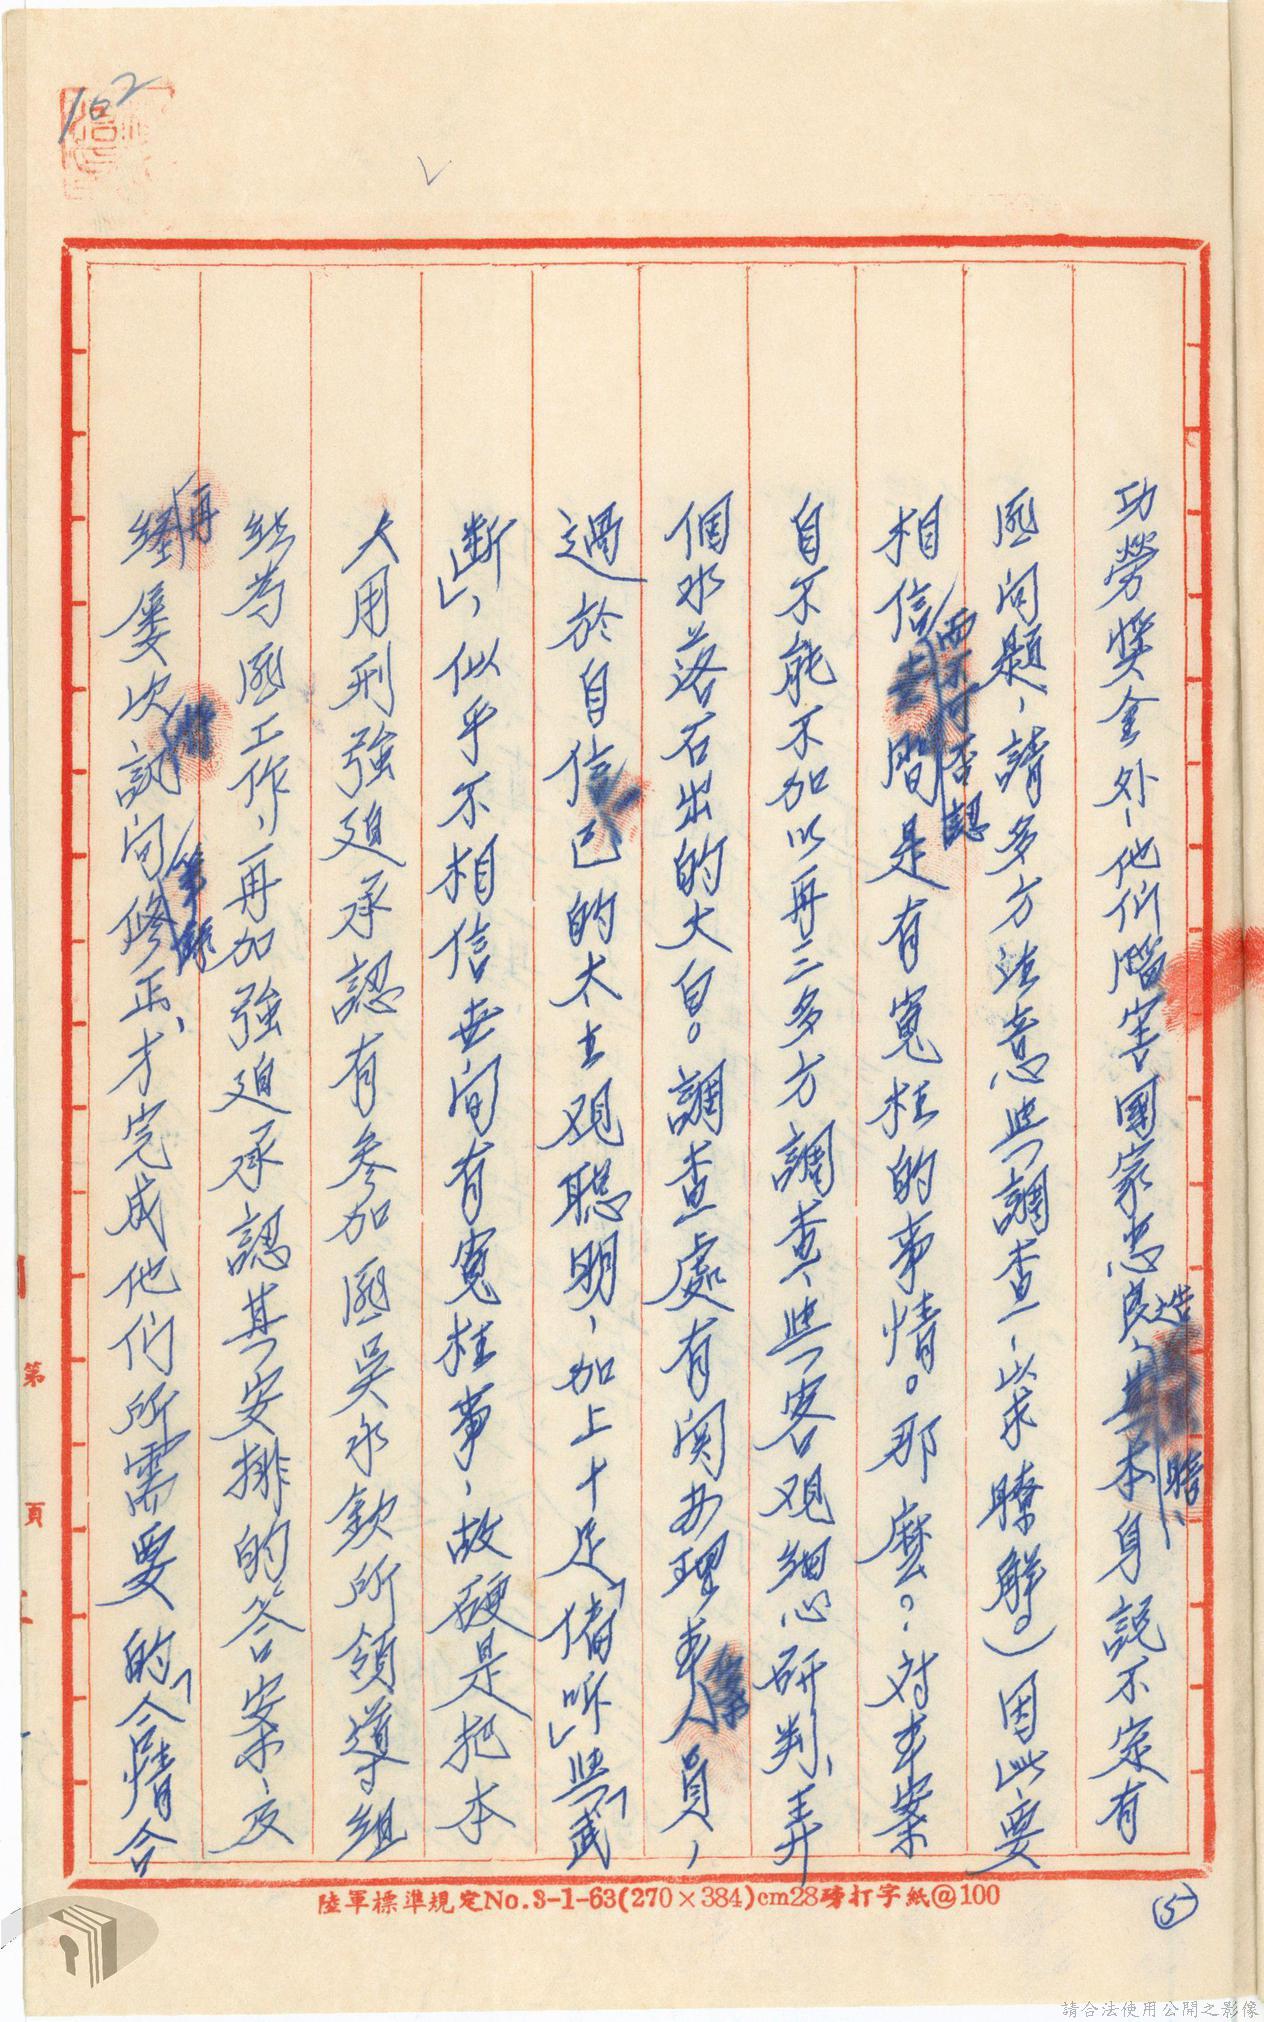 102
功勞獎金外,他們腦害國家忠良、造 本身說不定有
匪問題,請多方注意與調查,以求瞭解。)因此,要
相信而不可否認 間是有冤枉的事情。那麼?對本案
自不能不加以再三多方調查,與客观細心研判、弄
個水落石出的大白。調查處有関办理本案人員,
過於自信 己的太主观聪明,加上十足「偹哌」與「武
断」,似乎不相信世间有冤枉事,故硬是把本
人用刑強迫承認有参加匪吳永欽所領導組
织為匪工作,再加強迫承認其安排的答案,反
再經屢次訊问筆錄修正、才完成他們所需要的「合情合
陸軍標準規定No.3-1-63(270×384)cm28磅打字紙@100
(5)
第 頁
請合法使用公開之影像